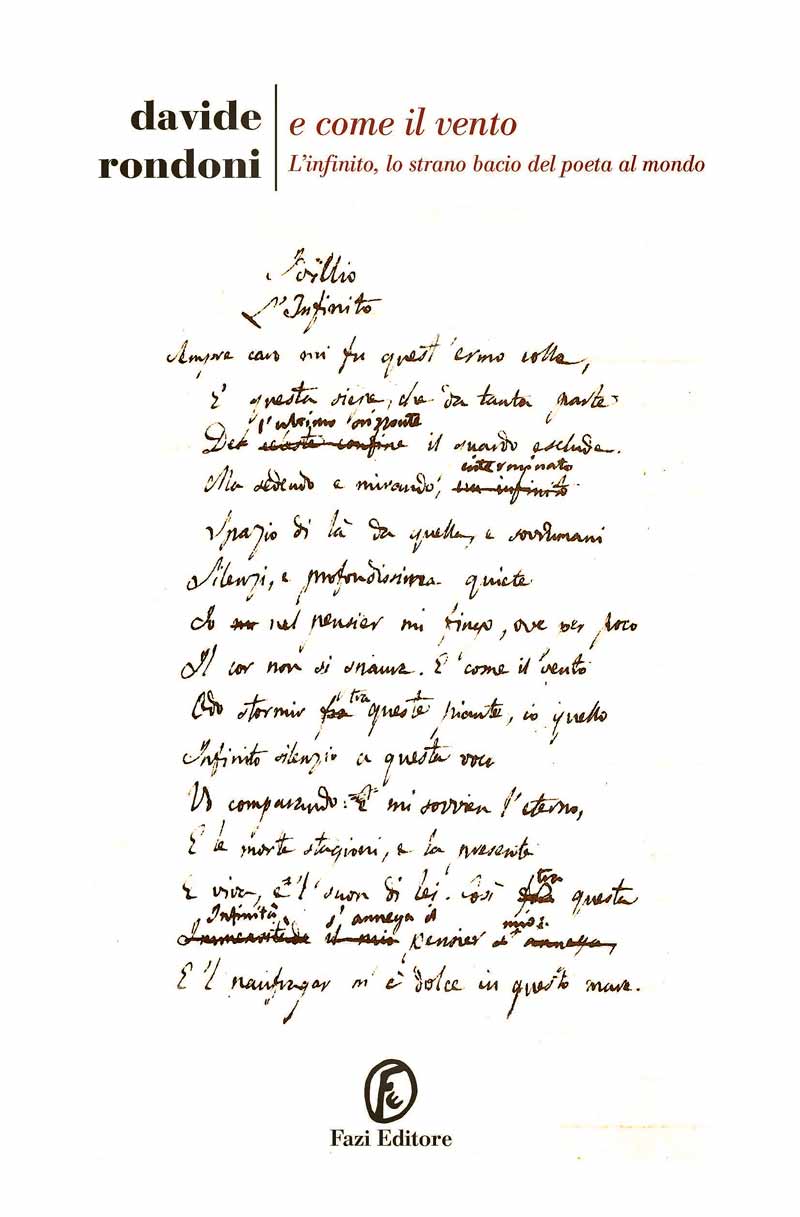 davide
rondoni
e come il vento
L'infinito, lo strano bacio del poeta al mondo
Idillio
L'Infinito
Sempre caro mi fu quest'ermo colle,
E questa siepe, che da tanta parte
l'ultimo orizzonte
Del celeste confine il guardo esclude.
interminato
Ma sedendo e mirando, un infinito
Spazio di là da quella, e sovrumani
Silenzi, e profondissima quiete
Io nel pensier mi fingo, ove per poco
Il cor non si spaura. E come il vento
tra
Odo stormir queste piante, io quello
Infinito silenzio a questa voce
Vo comparando: E mi sovvien l'eterno,
E le morte stagioni, e la presente
tra
E viva, e 'l suon di lei. Così questa
Infinità s'annega il mio:
Immensitade il mio pensier s'annega,
E 'l naufragar m'è dolce in questo mare.
Fazi Editore